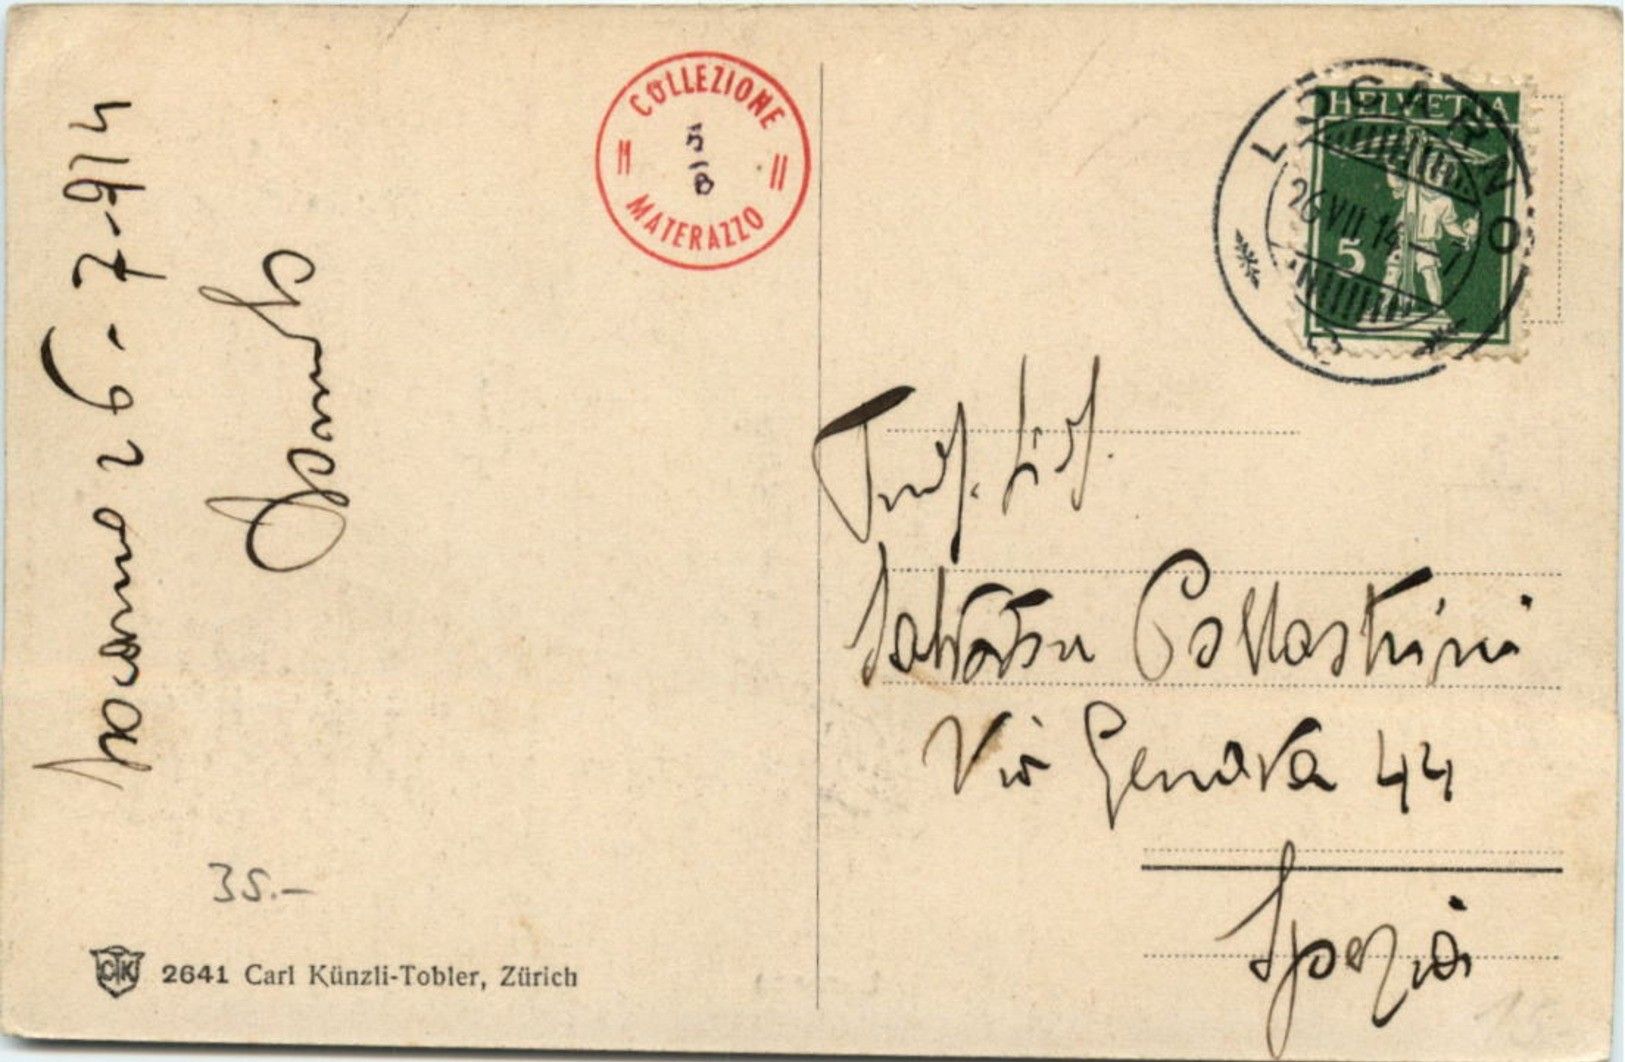 Locarno 26-7-914
COLLEZIONE
MATERAZZO
HELVETIA
5
LOCARNO
26 VII 14
Prof.
Salvatore Pollastrini
Via Genova 44
Spezia
35.-
15
CTK
2641 Carl Künzli-Tobler, Zürich